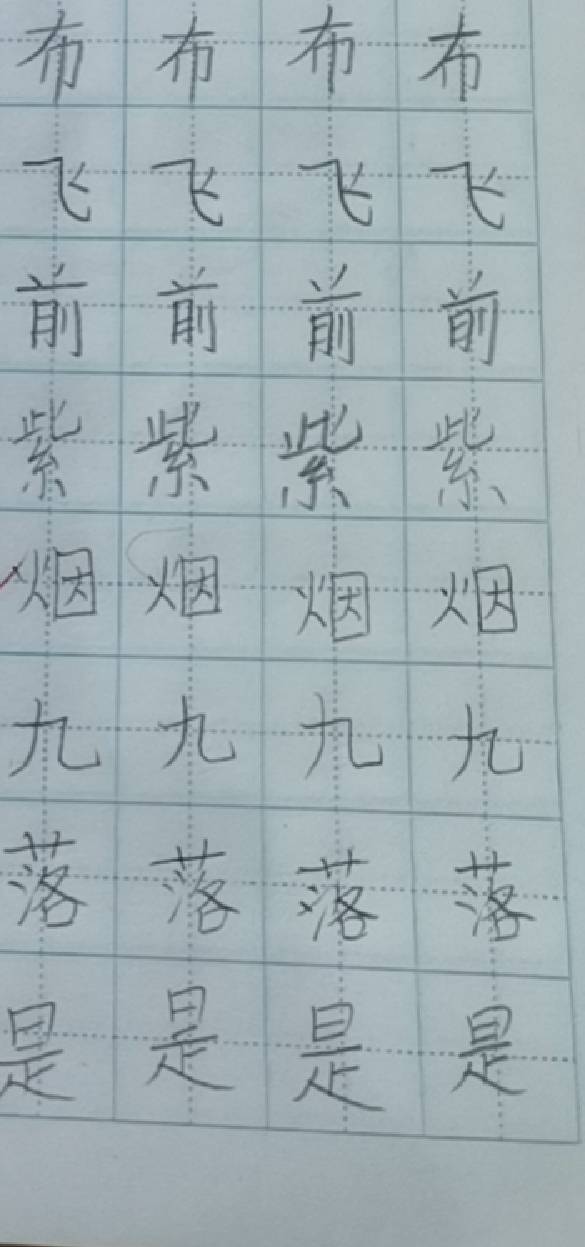 布布布布
飞飞飞飞
前前前前
紫紫紫紫
烟烟烟烟
九九九九
落落落落
是是是是